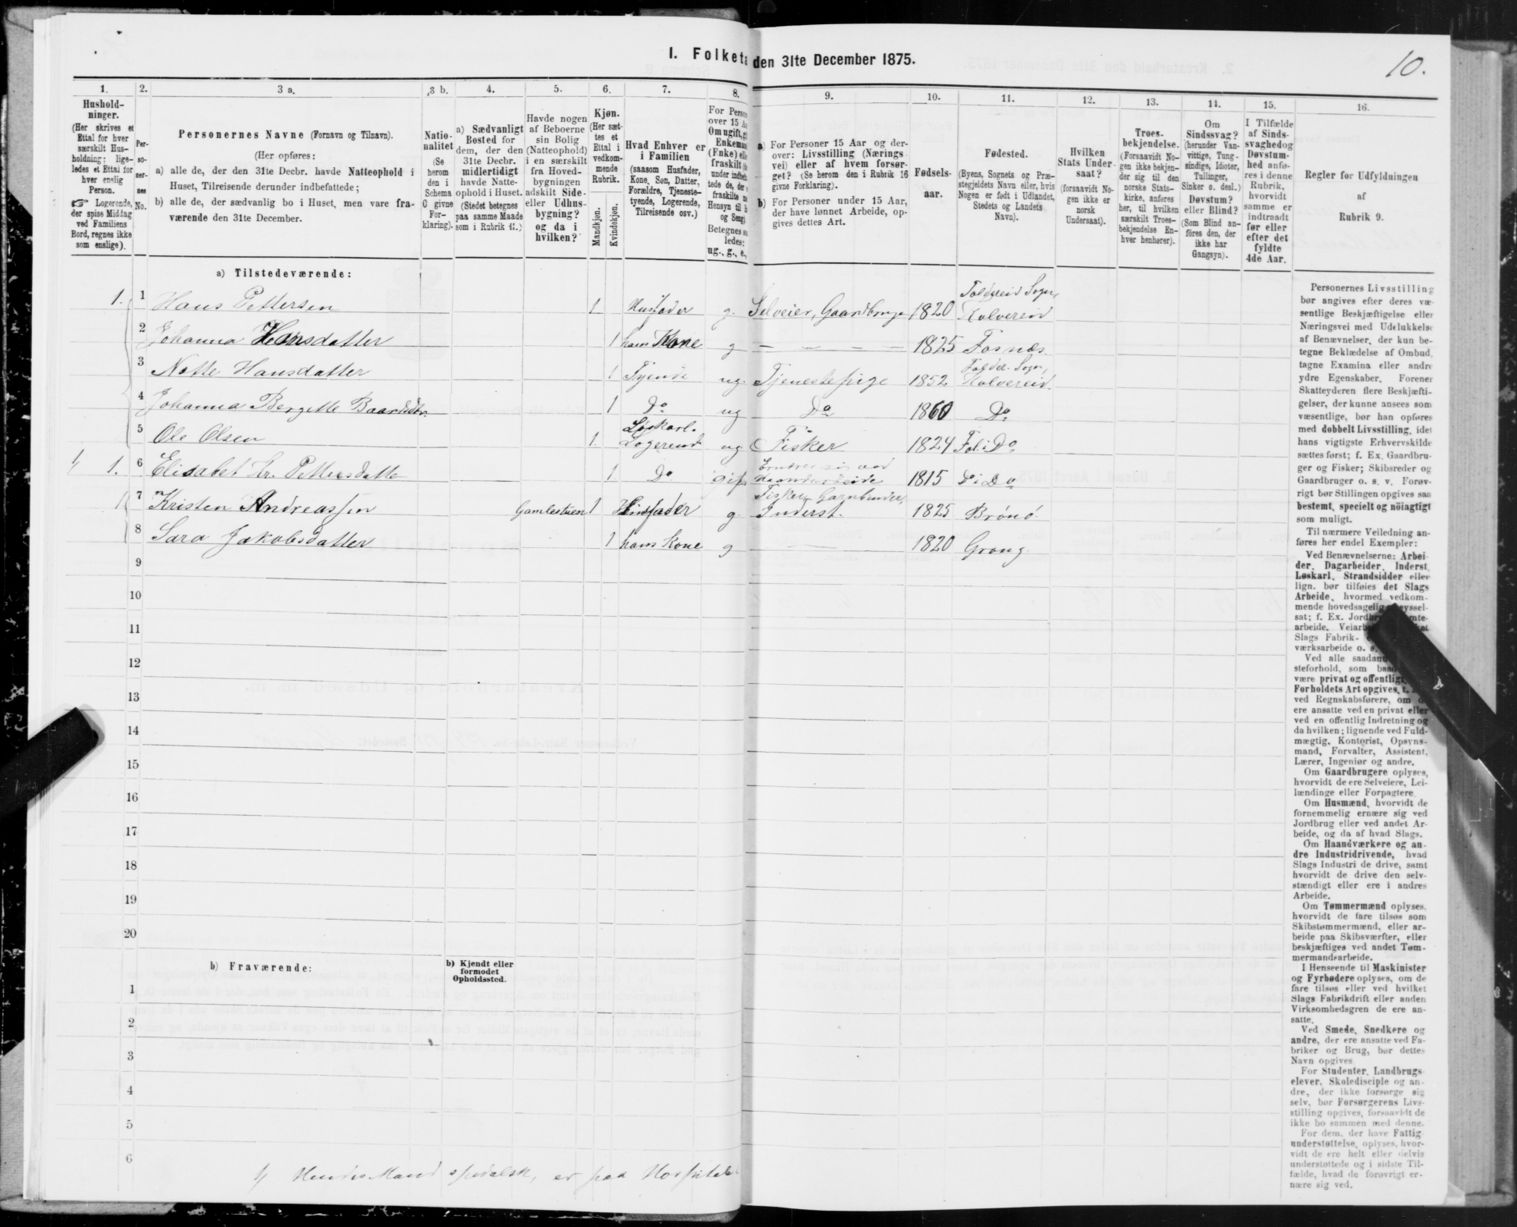 I. Folketæ den 31te December 1875.
10.
1.
2.
3 a.
3 b.
4.
5.
6.
7.
8.
9.
10.
11.
12.
13.
14.
15.
16.
Hushold-
ninger.
(Her skrives et
Ettal for hver
særskilt Hus-
holdning; lige-
ledes et Ettal for
hver enslig
Person.
☞ Logerende,
der spise Middag
ved Familiens
Bord, regnes ikke
som enslige).
Per-
so-
ner-
nes
No.
Personernes Navne (Fornavn og Tilnavn).
(Her opføres:
a) alle de, der den 31te Decbr. havde Natteophold i
Huset, Tilreisende derunder indbefattede;
b) alle de, der sædvanlig bo i Huset, men vare fra-
værende den 31te December.
Natio-
nalitet
(Se
herom
den i
Schema
C givne
For-
klaring).
a) Sædvanligt
Bosted for
dem, der den
31te Decbr.
midlertidigt
havde Natte-
ophold i Huset.
(Stedet betegnes
paa samme Maade
som i Rubrik 11.)
Havde nogen
af Beboerne
sin Bolig
(Natteophold)
i en særskilt
fra Hoved-
bygningen
adskilt Side-
eller Udhus-
bygning?
og da i
hvilken?
Kjøn.
(Her sæt-
tes et
Ettal i
vedkom-
mende
Rubrik.
Mandkjøn.
Kvindekjøn.
Hvad Enhver er
i Familien
(saasom Husfader,
Kone, Søn, Datter,
Forældre, Tjeneste-
tyende, Logerende,
Tilreisende osv.)
For Person
over 15 A
Om ugift, g
Enkema
(Fnke) ell
fraskilt
Betegnes
ledes:
ug., g., e.,
a) For Personer 15 Aar og der-
over: Livsstilling (Nærings
vei) eller af hvem forsør-
get? (Se herom den i Rubrik 16
givne Forklaring).
b) For Personer under 15 Aar,
der have lønnet Arbeide, op-
gives dettes Art.
Fødsels-
aar.
Fødested.
(Byens, Sognets og Præ-
stegjeldets Navn eller, hvis
Nogen er født i Udlandet,
Stedets og Landets
Navn).
Hvilken
Stats Under-
saat?
(forsaavidt No-
gen ikke er
norsk
Undersaat).
Troes-
bekjendelse.
(Forsaavidt No-
gen ikke bekjen-
der sig til den
norske Stats-
kirke, anføres
her, til hvilken
særskilt Troes-
bekjendelse En-
hver henhører).
Om
Sindssvag?
(herunder Van-
vittige, Tung-
sindige, Idioter,
Tullinger,
Sinker o. desl.)
Døvstum?
eller Blind?
(Som Blind an-
føres den, der
ikke har
Gangsyn).
I Tilfælde
af Sinds-
svaghedog
Døvstum-
hed anfø-
res i denne
Rubrik,
hvorvidt
samme er
indtraadt
før eller
efter det
fyldte
4de Aar.
Regler før Udfyldningen
af
Rubrik 9.
a) Tilstedeværende:
1. 1 Hans Pettersen 1 Husfader g. Selveier, Gaardbruge 1820 Foldereid Sogn, Kolvereid
2 Johanna Hansdatter 1 hans Kone g — — — — 1825 Fosnæs
3 Nette Hansdatter 1 Tjende ug. Tjenestepige 1852 Folder. Sogn, Kolvereid
4 Johanna Bergette Baardsdtr 1 Do ug Do 1860 Do
5 Ole Olsen 1 Løskarl. Logerend ug Fisker 1824 Fol: Do
1/ 1. 6 Elisabet Pettersdatte 1 Do gift Haandarbeide 1815 Do
1 7 Kristen Andreassen Gamlestuen 1 Husfader g Fisker Inderst. 1825 Brønø
8 Sara Jakobsdatter 1 hans Kone g — — 1820 Grong
9
10
11
12
13
14
15
16
17
18
19
20
b) Fraværende:
b) Kjendt eller
formodet
Opholdssted.
1
2
3
4
5
6
1/ Hendes Mand spedalsk, er paa Hospitalet
Personernes Livsstilling
bør angives efter deres væ-
sentlige Beskjæftigelse eller
Næringsvei med Udelukkelse
af Benævnelser, der kun be-
tegne Beklædelse af Ombud,
tagne Examina eller andre
ydre Egenskaber. Forener
Skatteyderen flere Beskjæfti-
gelser, der kunne ansees som
væsentlige, bør han opføres
med dobbelt Livsstilling, idet
hans vigtigste Erhvervskilde
sættes først; f. Ex. Gaardbru-
ger og Fisker; Skibsreder og
Gaardbruger o. s. v. Forøv-
rigt bør Stillingen opgives saa
bestemt, specielt og nøiagtigt
som muligt.
Til nærmere Veiledning an-
føres her endel Exempler:
Ved Benævnelserne: Arbei-
der, Dagarbeider, Inderst,
Løskarl, Strandsidder eller
lign. bør tilføies det Slags
Arbeide, hvormed vedkom-
mende hovedsagelig syssel-
sat; f. Ex.
arbeide,
Slags Fabrik-
værksarbeide o. s.
Ved alle saadan
steforhold, som
være privat og offentligt
Forholdets Art opgives, t.
ved Regnskabsførere, om
ere ansatte ved en privat eller
ved en offentlig Indretning og
da hvilken; lignende ved Fuld-
mægtig, Kontorist, Opsyns-
mand, Forvalter, Assistent,
Lærer, Ingeniør og andre.
Om Gaardbrugere oplyses,
hvorvidt de ere Selveiere, Lei-
lændinge eller Forpagtere.
Om Husmænd, hvorvidt de
fornemmelig ernære sig ved
Jordbrug eller ved andet Ar-
beide, og da af hvad Slags.
Om Haandværkere og an-
dre Industridrivende, hvad
Slags Industri de drive, samt
hvorvidt de drive den selv-
stændigt eller ere i andres
Arbeide.
Om Tømmermænd oplyses,
hvorvidt de fare tilsøs som
Skibstømmermænd, eller ar-
beide paa Skibsværfter, eller
beskjæftiges ved andet Tøm-
mermandsarbeide.
I Henseende til Maskinister
og Fyrbødere oplyses, om de
fare tilsøs eller ved hvilket
Slags Fabrikdrift eller anden
Virksomhedsgren de ere an-
satte.
Ved Smede, Snedkere og
andre, der ere ansatte ved Fa-
briker og Brug, bør dettes
Navn opgives.
For Studenter, Landbrugs-
elever, Skoledisciple og an-
dre, der ikke forsørge sig
selv, bør Forsørgerens Livs-
stilling opgives, forsaavidt de
ikke bo sammen med denne.
For dem, der have Fattig-
understøttelse, oplyses, hvor-
vidt de ere helt eller delvis
understøttede og i sidste Til-
fælde, hvad de forøvrigt er-
nære sig ved.